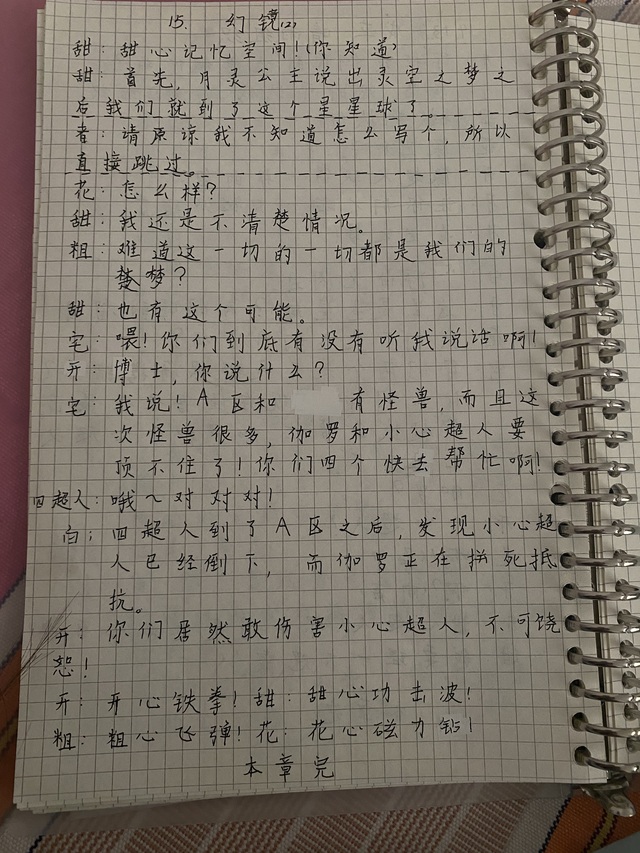 15. 幻镜(2)
甜: 甜心记忆空间!(你知道)
甜: 首先,月灵公主说出灵空之梦之
后我们就到了这个星星球了。
者: 请原谅我不知道怎么写个,所以
直接跳过。
花: 怎么样?
甜: 我还是不清楚情况。
粗: 难道这一切的一切都是我们的
梦?
甜: 也有这个可能。
宅: 喂!你们到底有没有听我说话啊!
开: 博士,你说什么?
宅: 我说!A区和 有怪兽,而且这
次怪兽很多,伽罗和小心超人要
顶不住了!你们四个快去帮忙啊!
四超人: 哦~对对对!
白: 四超人到了A区之后,发现小心超
人已经倒下,而伽罗正在拼死抵
抗。
开: 你们居然敢伤害小心超人,不可饶
恕!
开: 开心铁拳!甜: 甜心功击波!
粗: 粗心飞弹!花: 花心磁力钻!
本章完